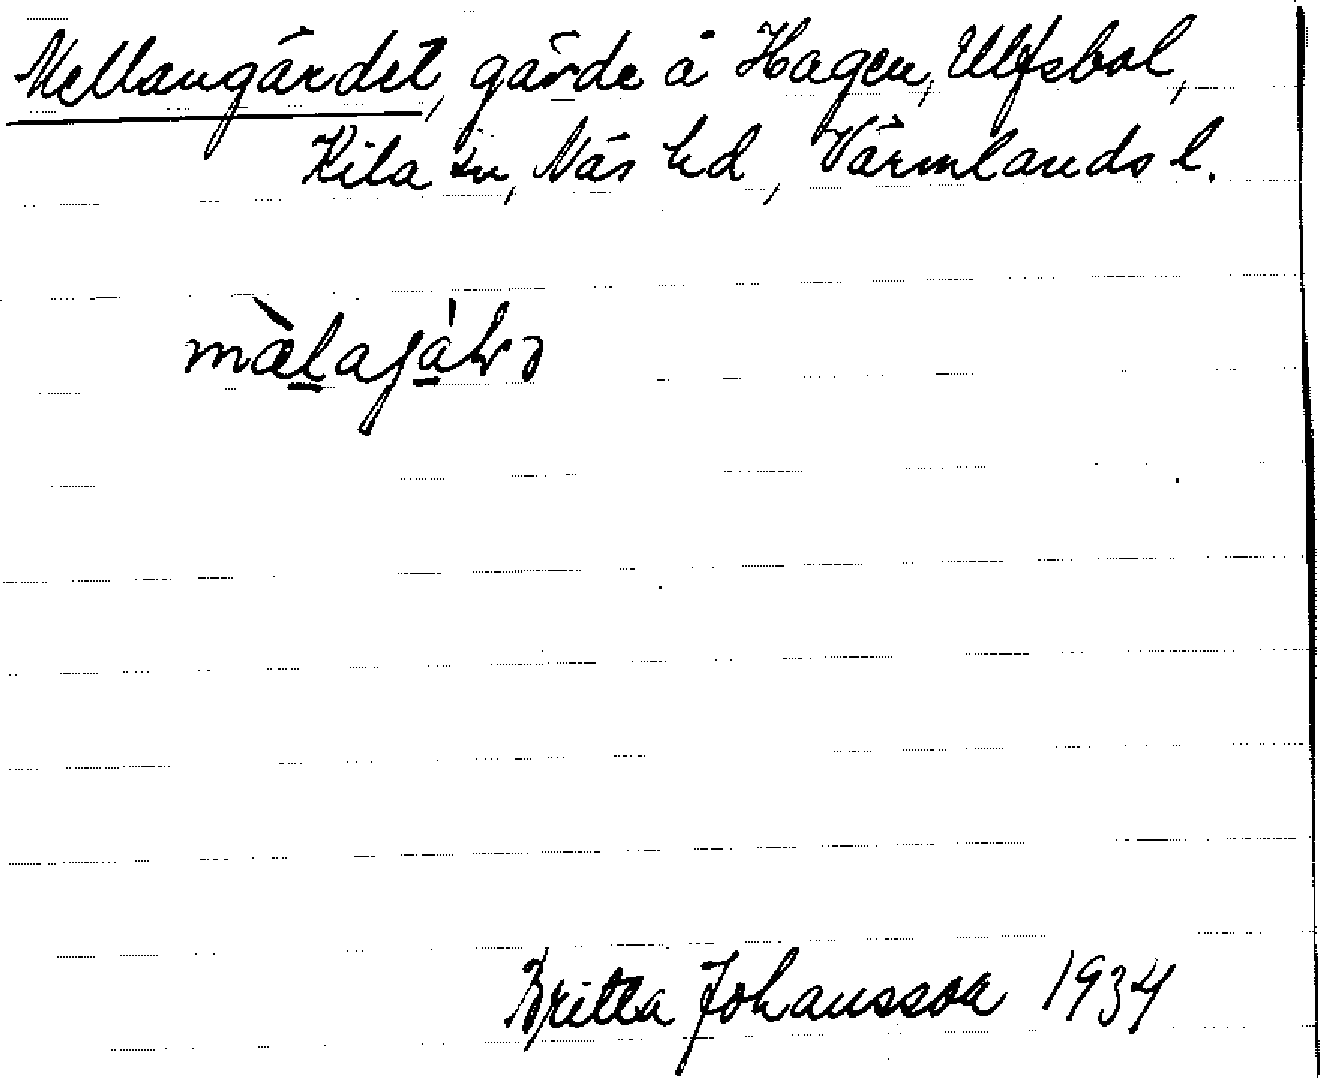 Mellangärdet, gärde å Hagen, Ulfsbol,
Kila sn, Näs hd, Värmlands l.
Britta Johansson 1934